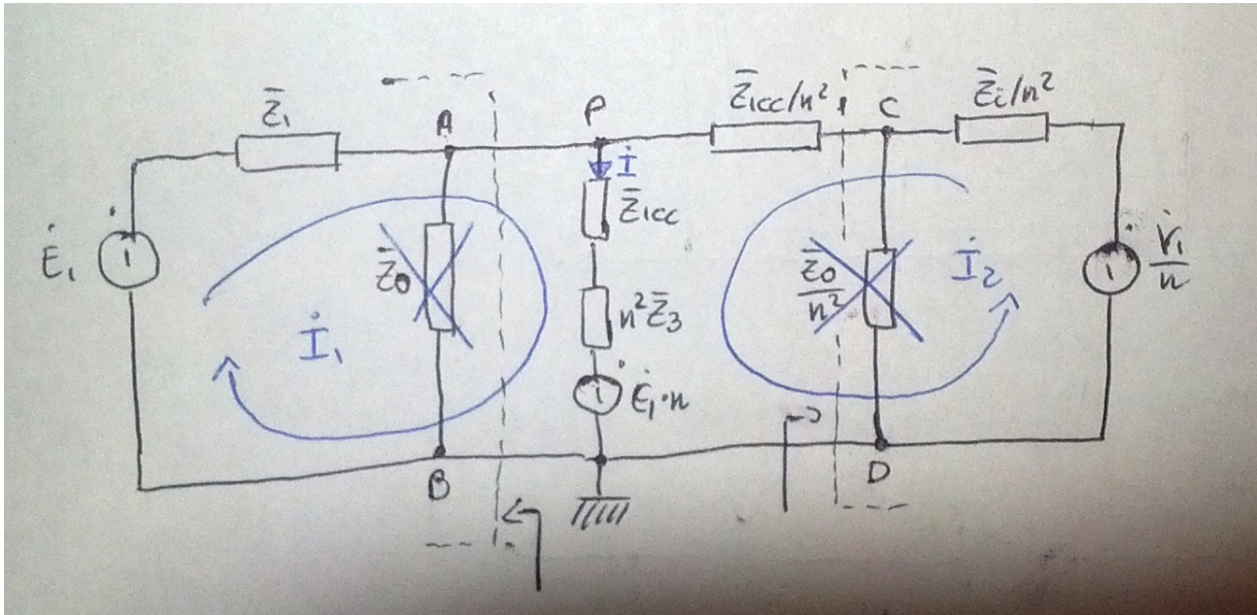 Z̄₁
A
P
Z̄₁cc/n²
C
Z̄c/n²
İ
Z̄₁cc
Ė₁
Z̄₀
İ₁
n²Z̄₃
Ė₁·n
Z̄₀/n²
İ₂
V̇₁/n
B
D